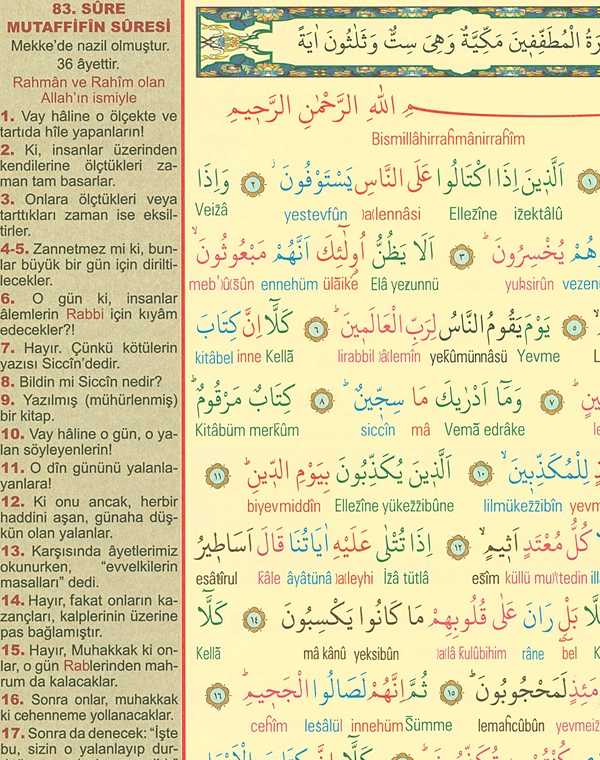 83. SÛRE
MUTAFFİFÎN SÛRESİ
Mekke’de nazil olmuştur.
36 âyettir.
Rahmân ve Rahîm olan
Allah’ın ismiyle
1. Vay hâline o ölçekte ve
tartıda hîle yapanların!
2. Ki, insanlar üzerinden
kendilerine ölçtükleri za-
man tam basarlar.
3. Onlara ölçtükleri veya
tarttıkları zaman ise eksil-
tirler.
4-5. Zannetmez mi ki, bun-
lar büyük bir gün için dirilti-
lecekler.
6. O gün ki, insanlar
âlemlerin Rabbi için kıyâm
edecekler?!
7. Hayır. Çünkü kötülerin
yazısı Siccîn’dedir.
8. Bildin mi Siccîn nedir?
9. Yazılmış (mühürlenmiş)
bir kitap.
10. Vay hâline o gün, o ya-
lan söyleyenlerin!
11. O dîn gününü yalanla-
yanlara!
12. Ki onu ancak, herbir
haddini aşan, günaha düş-
kün olan yalanlar.
13. Karşısında âyetlerimiz
okunurken, “evvelkilerin
masalları” dedi.
14. Hayır, fakat onların ka-
zançları, kalplerinin üzerine
pas bağlamıştır.
15. Hayır, Muhakkak ki on-
lar, o gün Rablerinden mah-
rum da kalacaklar.
16. Sonra onlar, muhakkak
ki cehenneme yollanacaklar.
17. Sonra da denecek: “İşte
bu, sizin o yalanlayıp dur-
الْمُطَفِّفِينَ مَكِّيَّةٌ وَهِىَ سِتٌّ وَثَلٰثُونَ اٰيَةً
اللهِ الرَّحْمٰنِ الرَّحِيمِ
Bismillâhirrahmânirrahîm
١ اَلَّذِينَ اِذَا اكْتَالُوا عَلَى النَّاسِ يَسْتَوْفُونَ ٢ وَاِذَا
Veizâ yestevfûn alennâsi Ellezîne izektâlû
يُخْسِرُونَ ٣ اَلَا يَظُنُّ اُولٰٓئِكَ اَنَّهُمْ مَبْعُوثُونَ
meb'ûsûn ennehüm ülâike Elâ yezunnü yuksirûn
٥ يَوْمَ يَقُومُ النَّاسُ لِرَبِّ الْعَالَمِينَ ٦ كَلَّٓا اِنَّ كِتَابَ
kitâbel inne Kellâ lirabbil âlemîn yekûmünnâsü Yevme
٧ وَمَٓا اَدْرٰيكَ مَا سِجِّينٌ ٨ كِتَابٌ مَرْقُومٌ
Kitâbüm merkûm siccîn mâ Vemâ edrâke
لِلْمُكَذِّبِينَ ١٠ اَلَّذِينَ يُكَذِّبُونَ بِيَوْمِ الدِّينِ ١١
biyevmiddîn Ellezîne yükezzibûne lilmükezzibîn
كُلُّ مُعْتَدٍ اَثِيمٍ ١٢ اِذَا تُتْلٰى عَلَيْهِ اٰيَاتُنَا قَالَ اَسَاطِيرُ
esâtîrul kâle âyâtünâ aleyhi İzâ tütlâ esîm küllü mu'tedin
بَلْ رَانَ عَلٰى قُلُوبِهِمْ مَا كَانُوا يَكْسِبُونَ ١٤ كَلَّٓا
Kellâ mâ kânû yeksibûn alâ kulûbihim râne bel
لَمَحْجُوبُونَ ١٥ ثُمَّ اِنَّهُمْ لَصَالُوا الْجَحِيمِ ١٦
cehîm lesâlül innehüm Sümme lemahcûbûn